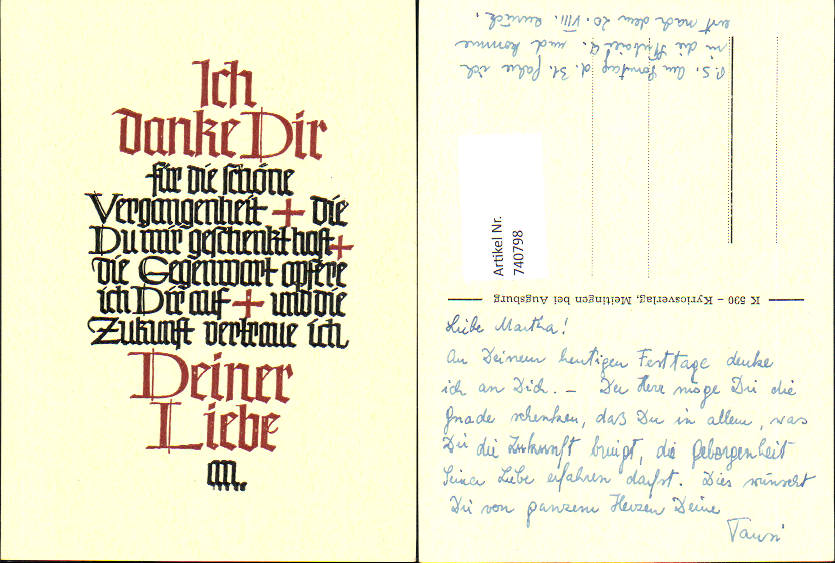 Ich
danke Dir
für die schöne
Vergangenheit + die
Du mir geschenkt hast +
die Gegenwart opfere
ich Dir auf + und die
Zukunft vertraue ich
Deiner
Liebe
an.
P.S. Am Sonntag d. 31. fahre ich
in die und komme
erst nach dem 20. VIII. zurück.
Artikel Nr.
740798
K 590 – Kyriosverlag, Meitingen bei Augsburg
Liebe Martha!
An Deinem heutigen Festtage denke
ich an Dich. – Der Herr möge Dir die
Gnade schenken, daß Du in allem, was
Dir die Zukunft bringt, die Geborgenheit
Seiner Liebe erfahren darfst. Dies wünscht
Dir von ganzem Herzen Deine